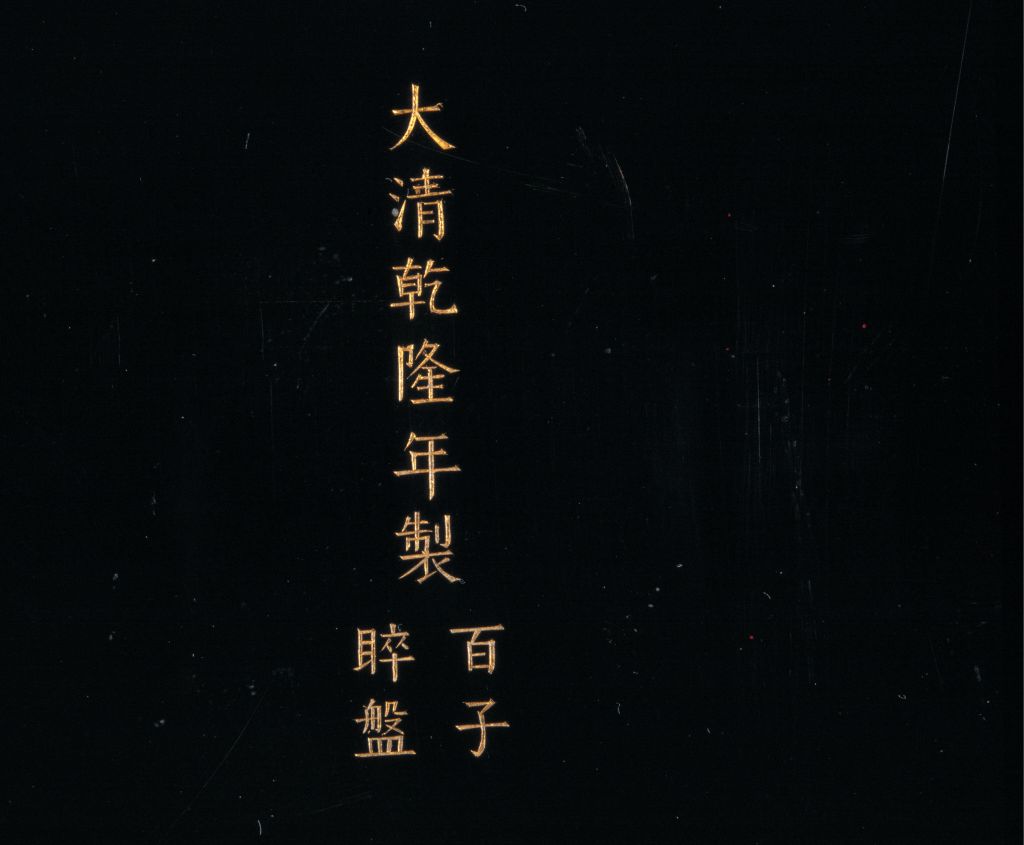 大清乾隆年製
百子
睟盤